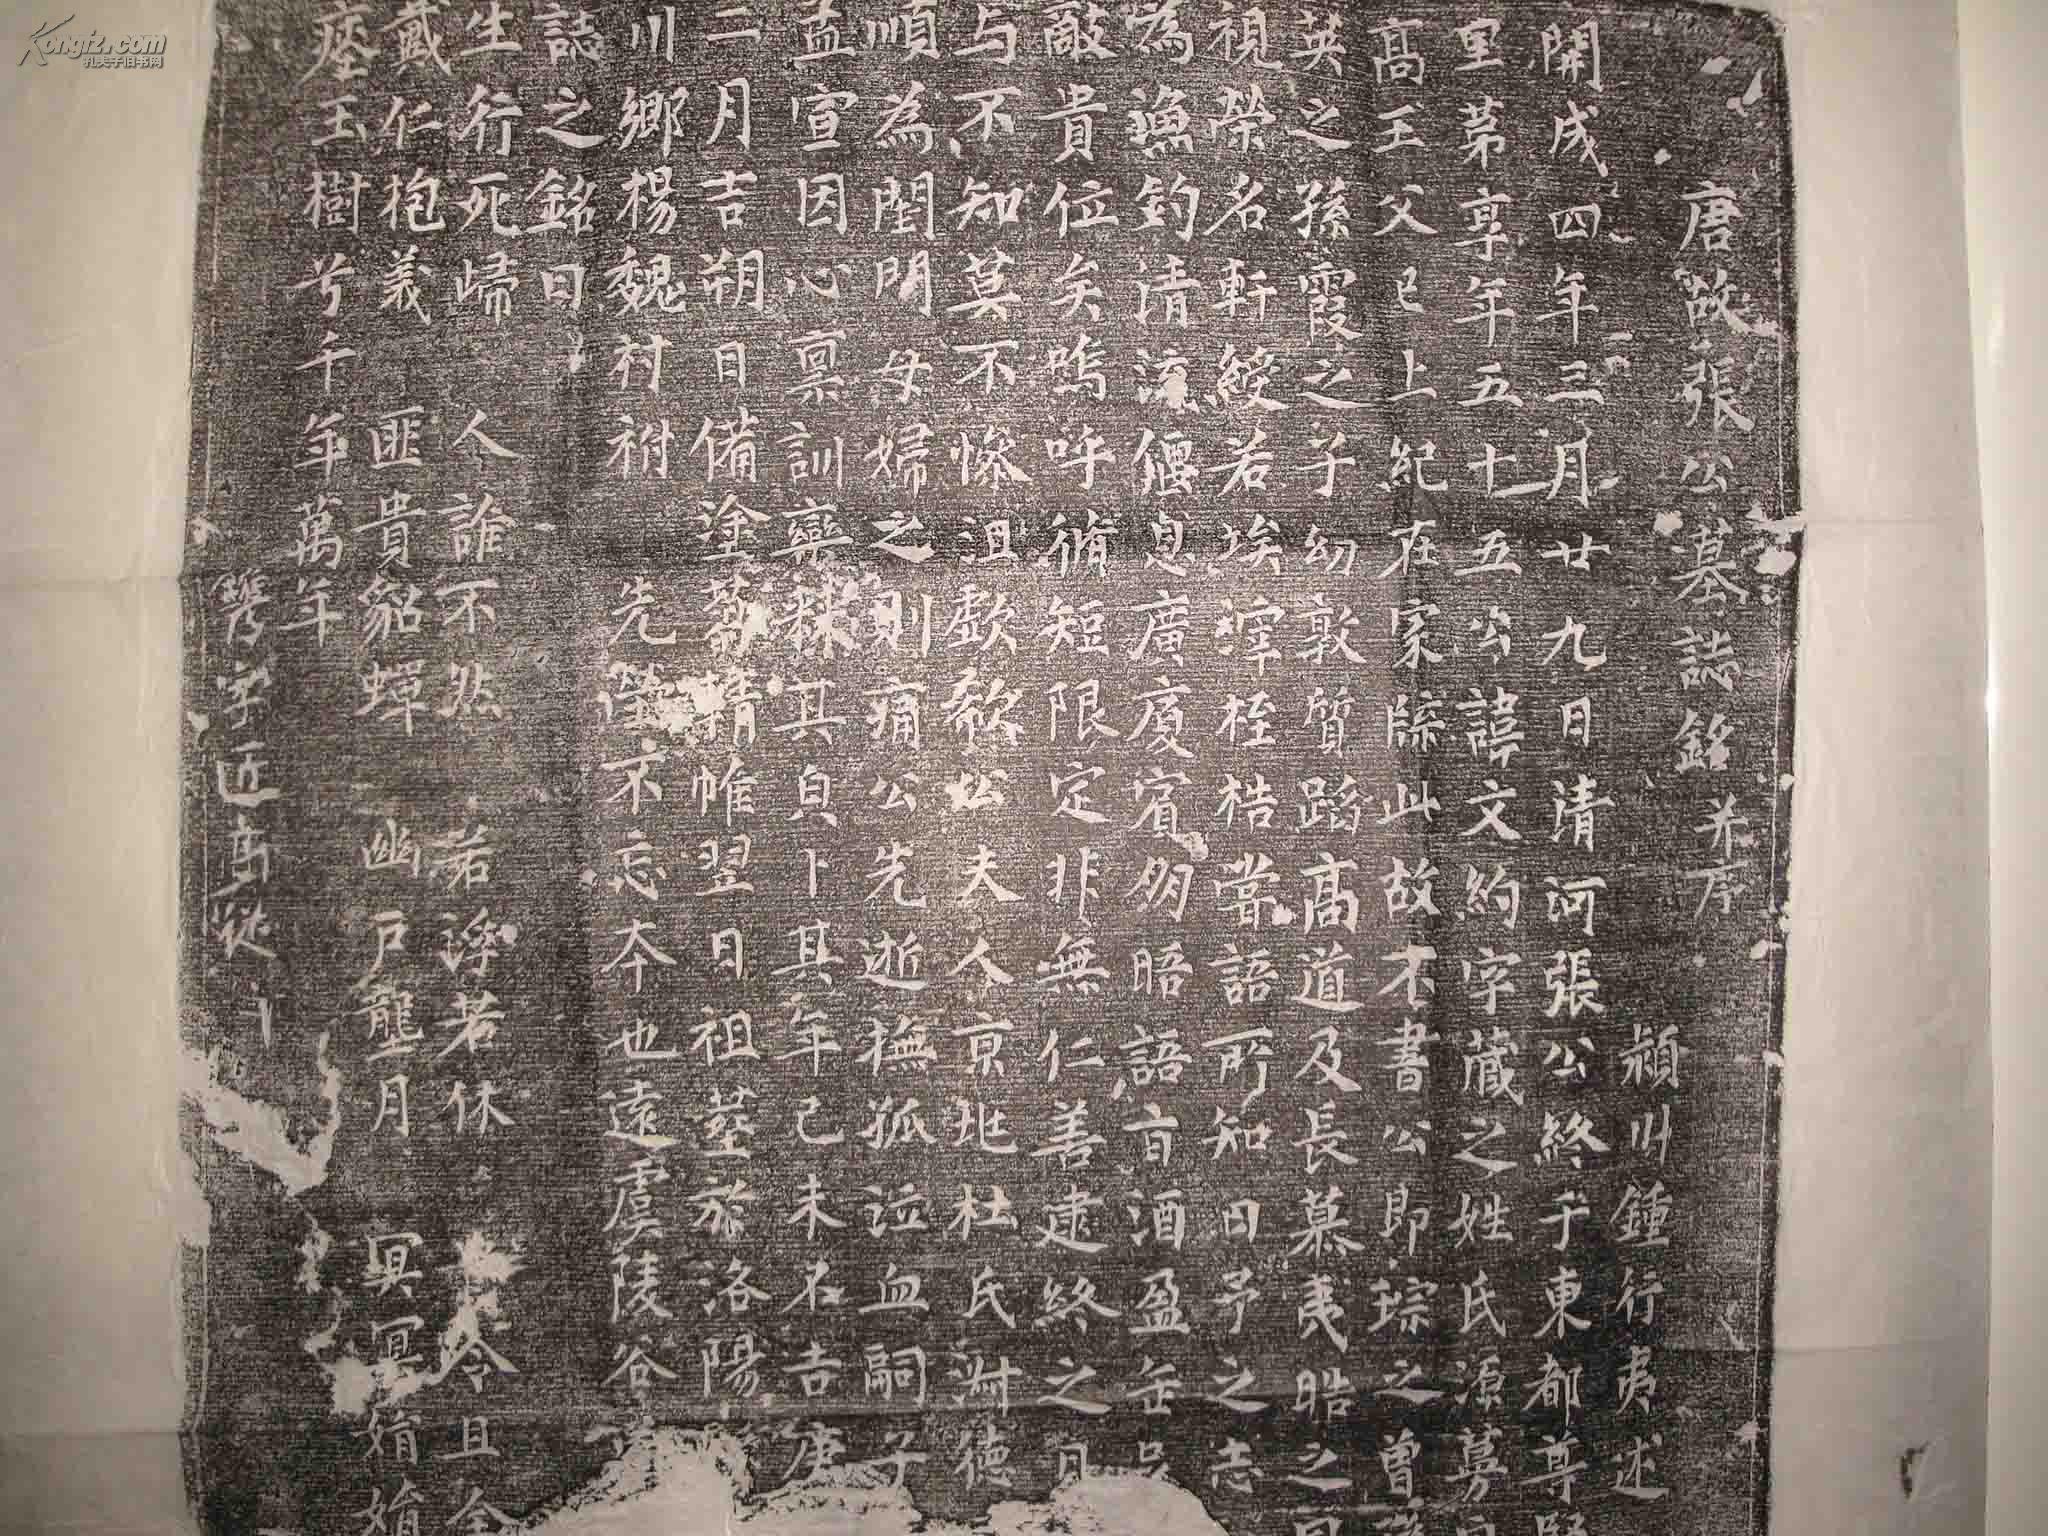 唐故張公墓誌銘并序
潁川鍾行夷述
開成四年三月廿九日清河張公終于東都尊賢
里第享年五十五公諱文約字藏之姓氏源
高王父已上紀在家牒此故不書公即琮之曾
英之孫霞之子幼敦質蹈高道及長慕夷皓之
視榮名軒綬若埃滓桎梏嘗語所知曰予之志
為漁釣清流偃息廣廈賓朋晤語旨酒盈缶
敵貴位矣嗚呼脩短限定非無仁善逮終之日
与不知莫不慘沮歔欷公夫人京兆杜氏淋德
順為閨門母婦之則痛公先逝撫孤泣血嗣子
孟宣因心禀訓欒棘其貞卜其年己未不吉庚
二月吉朔日備塗芻精帷翌日祖塟於洛陽
川鄉楊魏村祔先塋不忘本也遠虞陵谷
誌之銘曰
生行死歸 人誰不然 若浮若休 今且全
戴仁抱義 匪貴貂蟬 幽戶壟月 冥冥娟娟
座玉樹兮千年萬年
鐫字匠高
Kongfz.com
孔夫子旧书网